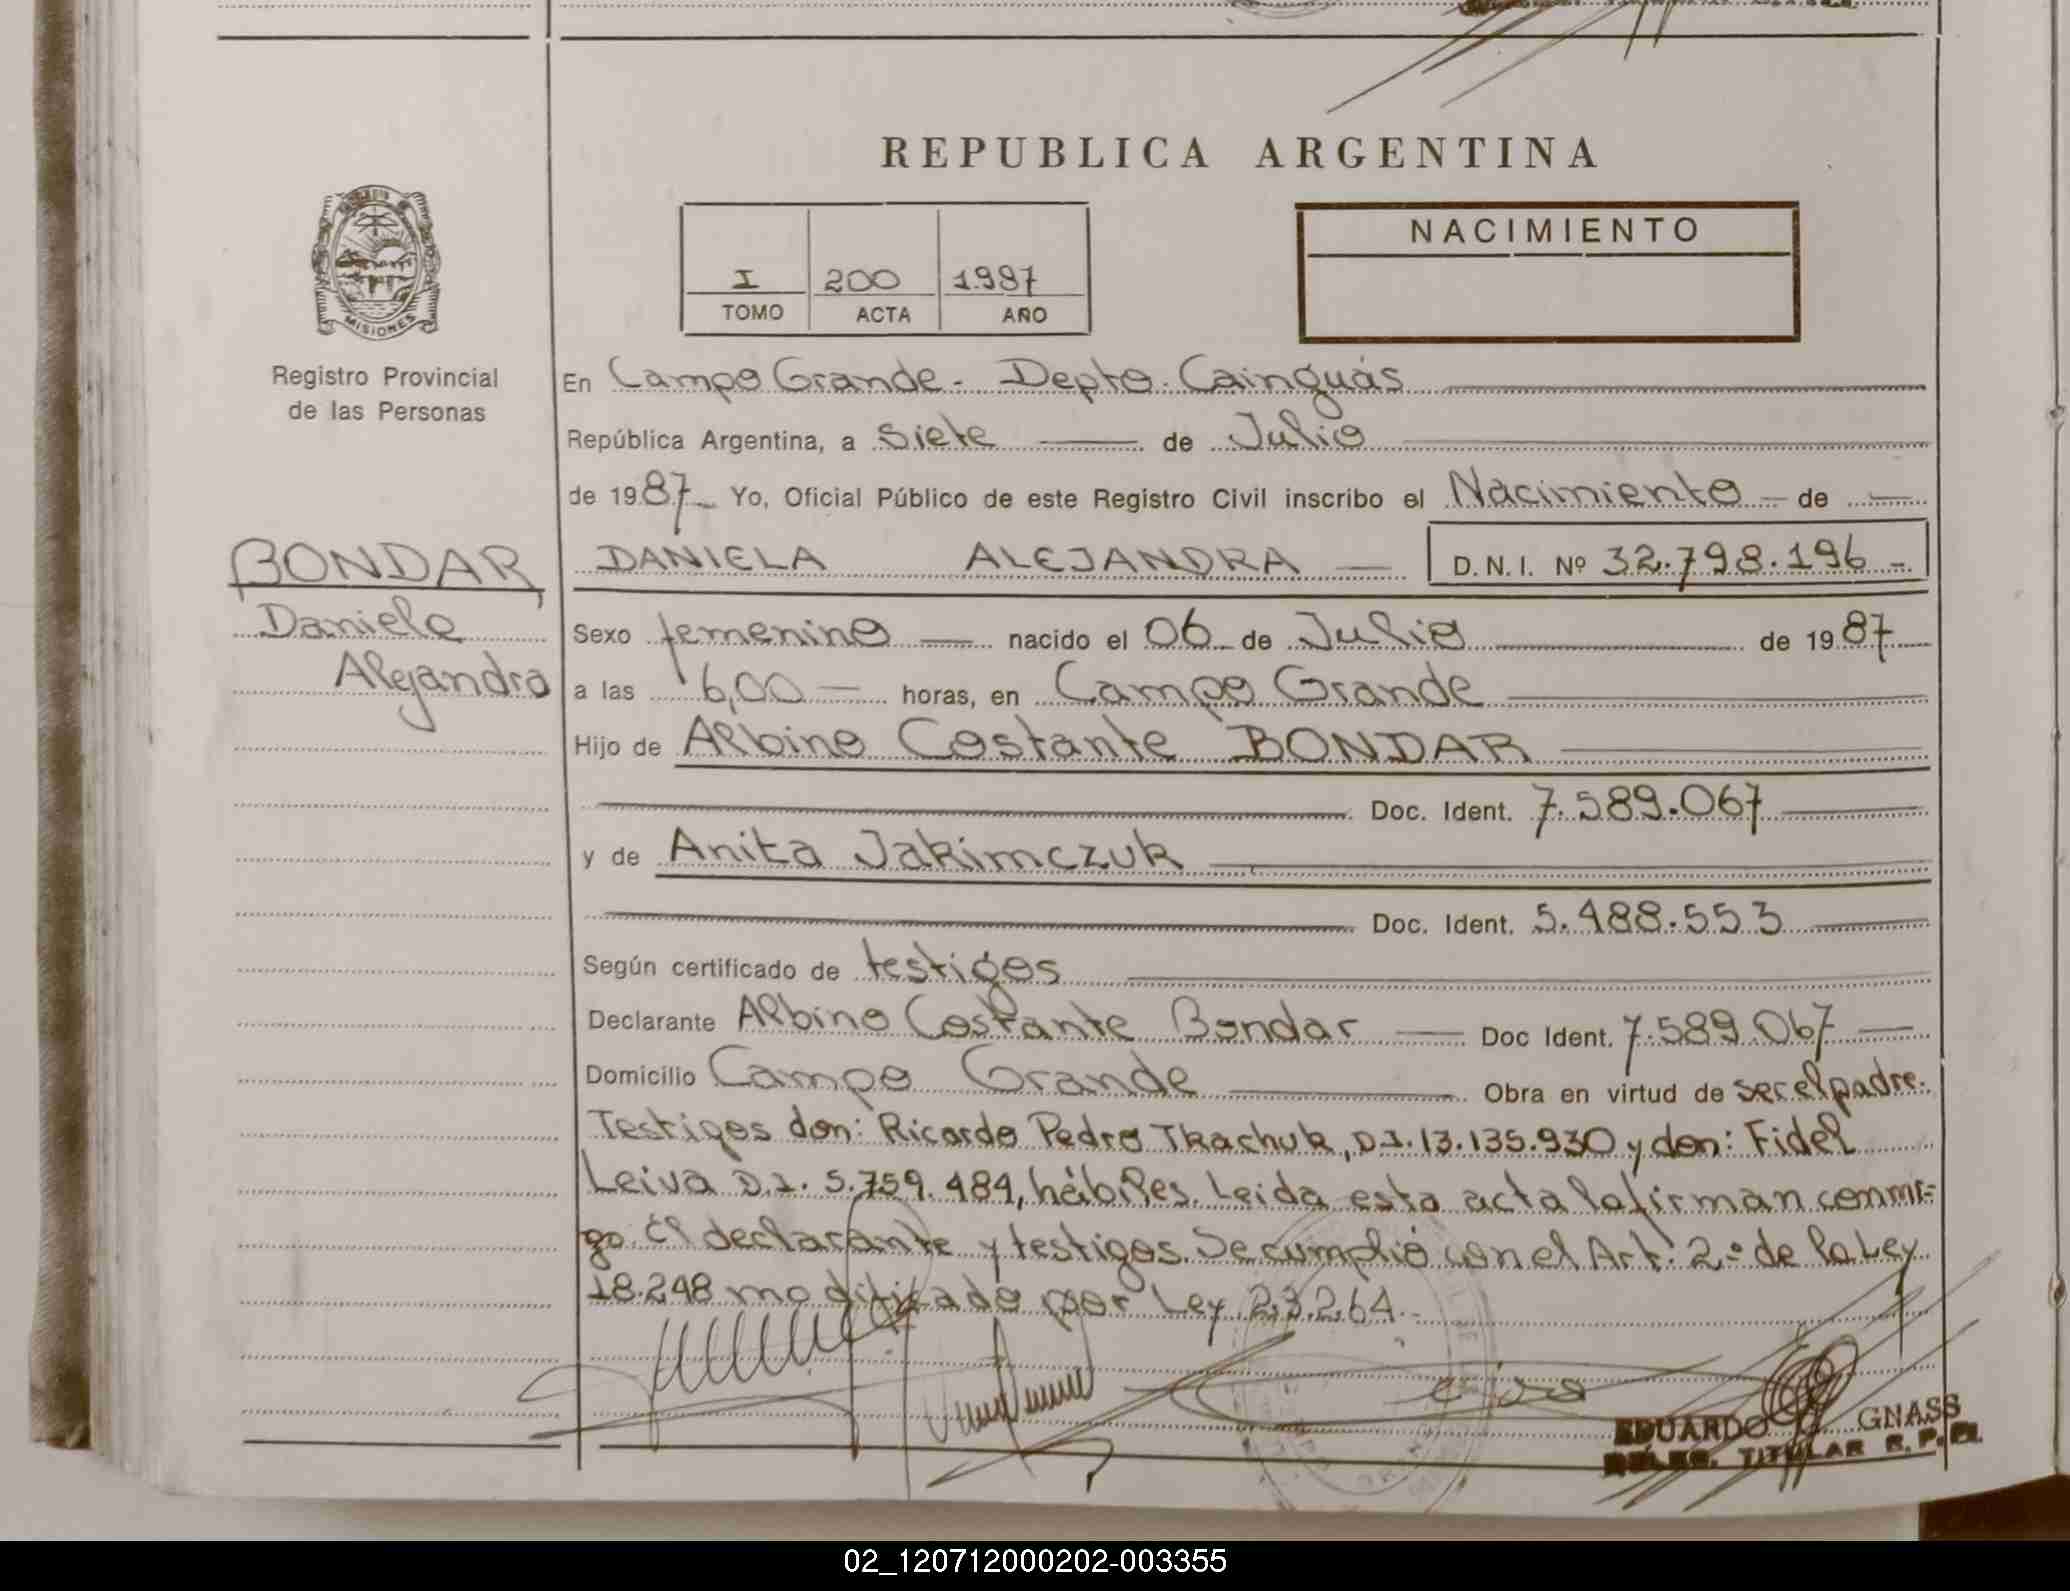 REPUBLICA ARGENTINA
NACIMIENTO
I 200 1.987
TOMO ACTA AÑO
MISIONES
Registro Provincial
de las Personas
En Campo Grande - Depto. Cainguás
República Argentina, a siete de Julio
de 1987 Yo, Oficial Público de este Registro Civil inscribo el Nacimiento de
BONDAR DANIELA ALEJANDRA D.N.I. Nº 32.798.196
Daniela Sexo femenino nacido el 06 de Julio de 1987
Alejandra a las 6,00 horas, en Campo Grande
Hijo de Albino Costante BONDAR
Doc. Ident. 7.589.067
y de Anita Jakimczuk
Doc. Ident. 5.488.553
Según certificado de testigos
Declarante Albino Costante Bondar Doc Ident. 7.589.067
Domicilio Campo Grande Obra en virtud de ser el padre.
Testigos don: Ricardo Pedro Tkachuk, D.I. 13.135.930 y don: Fidel
Leiva D.I. 5.759.484, hábiles. Leida esta acta la firman conmi=
go el declarante y testigos. Se cumplió con el Art. 2.º de la Ley
18.248 modificado por Ley 23.264.
EDUARDO GNASS
DELEG. TITULAR R.P.P.
02_120712000202-003355